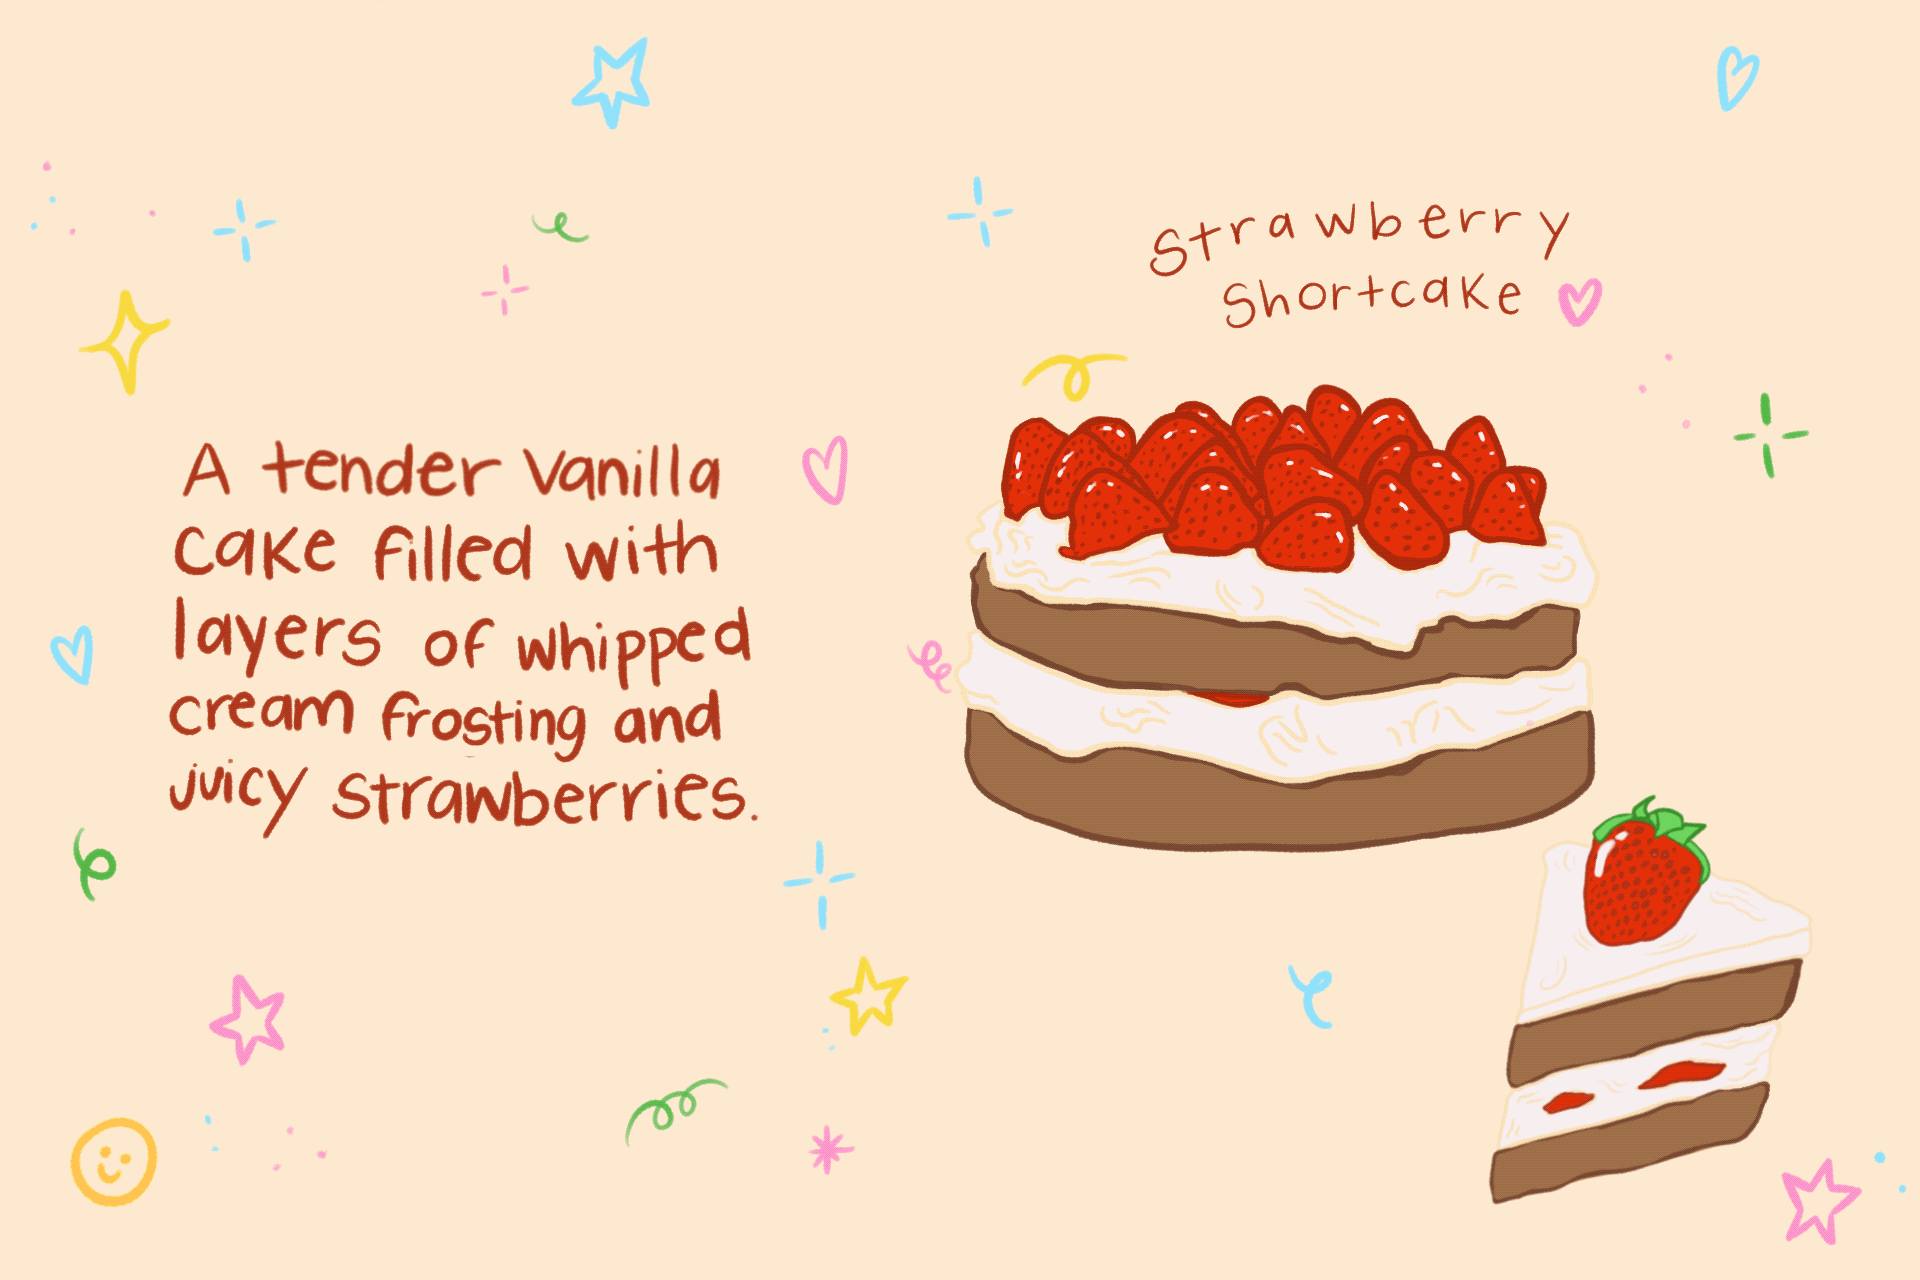 Strawberry
Shortcake
A tender vanilla
cake filled with
layers of whipped
cream frosting and
juicy strawberries.